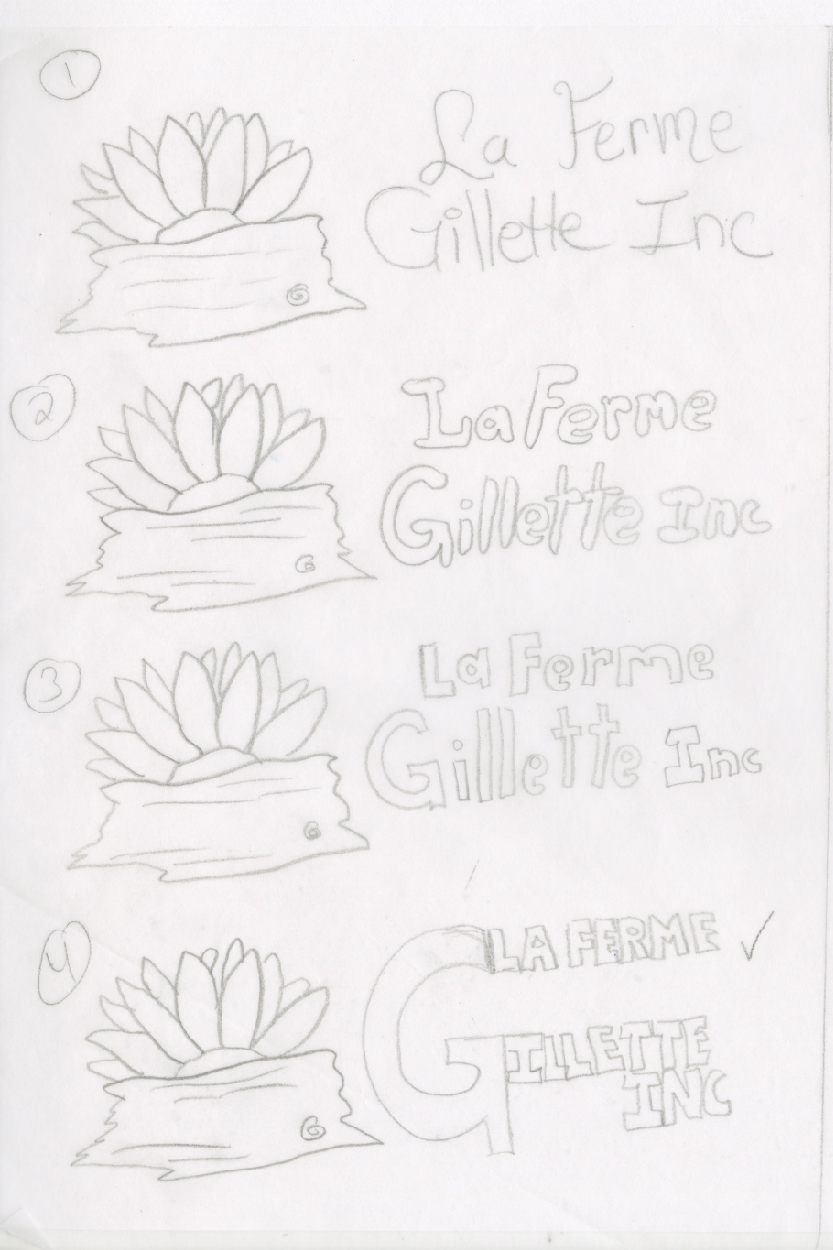 1
La Ferme
Gillette Inc
G
2
La Ferme
Gillette Inc
G
3
La Ferme
Gillette Inc
G
4
LA FERME
GILLETTE
INC
G